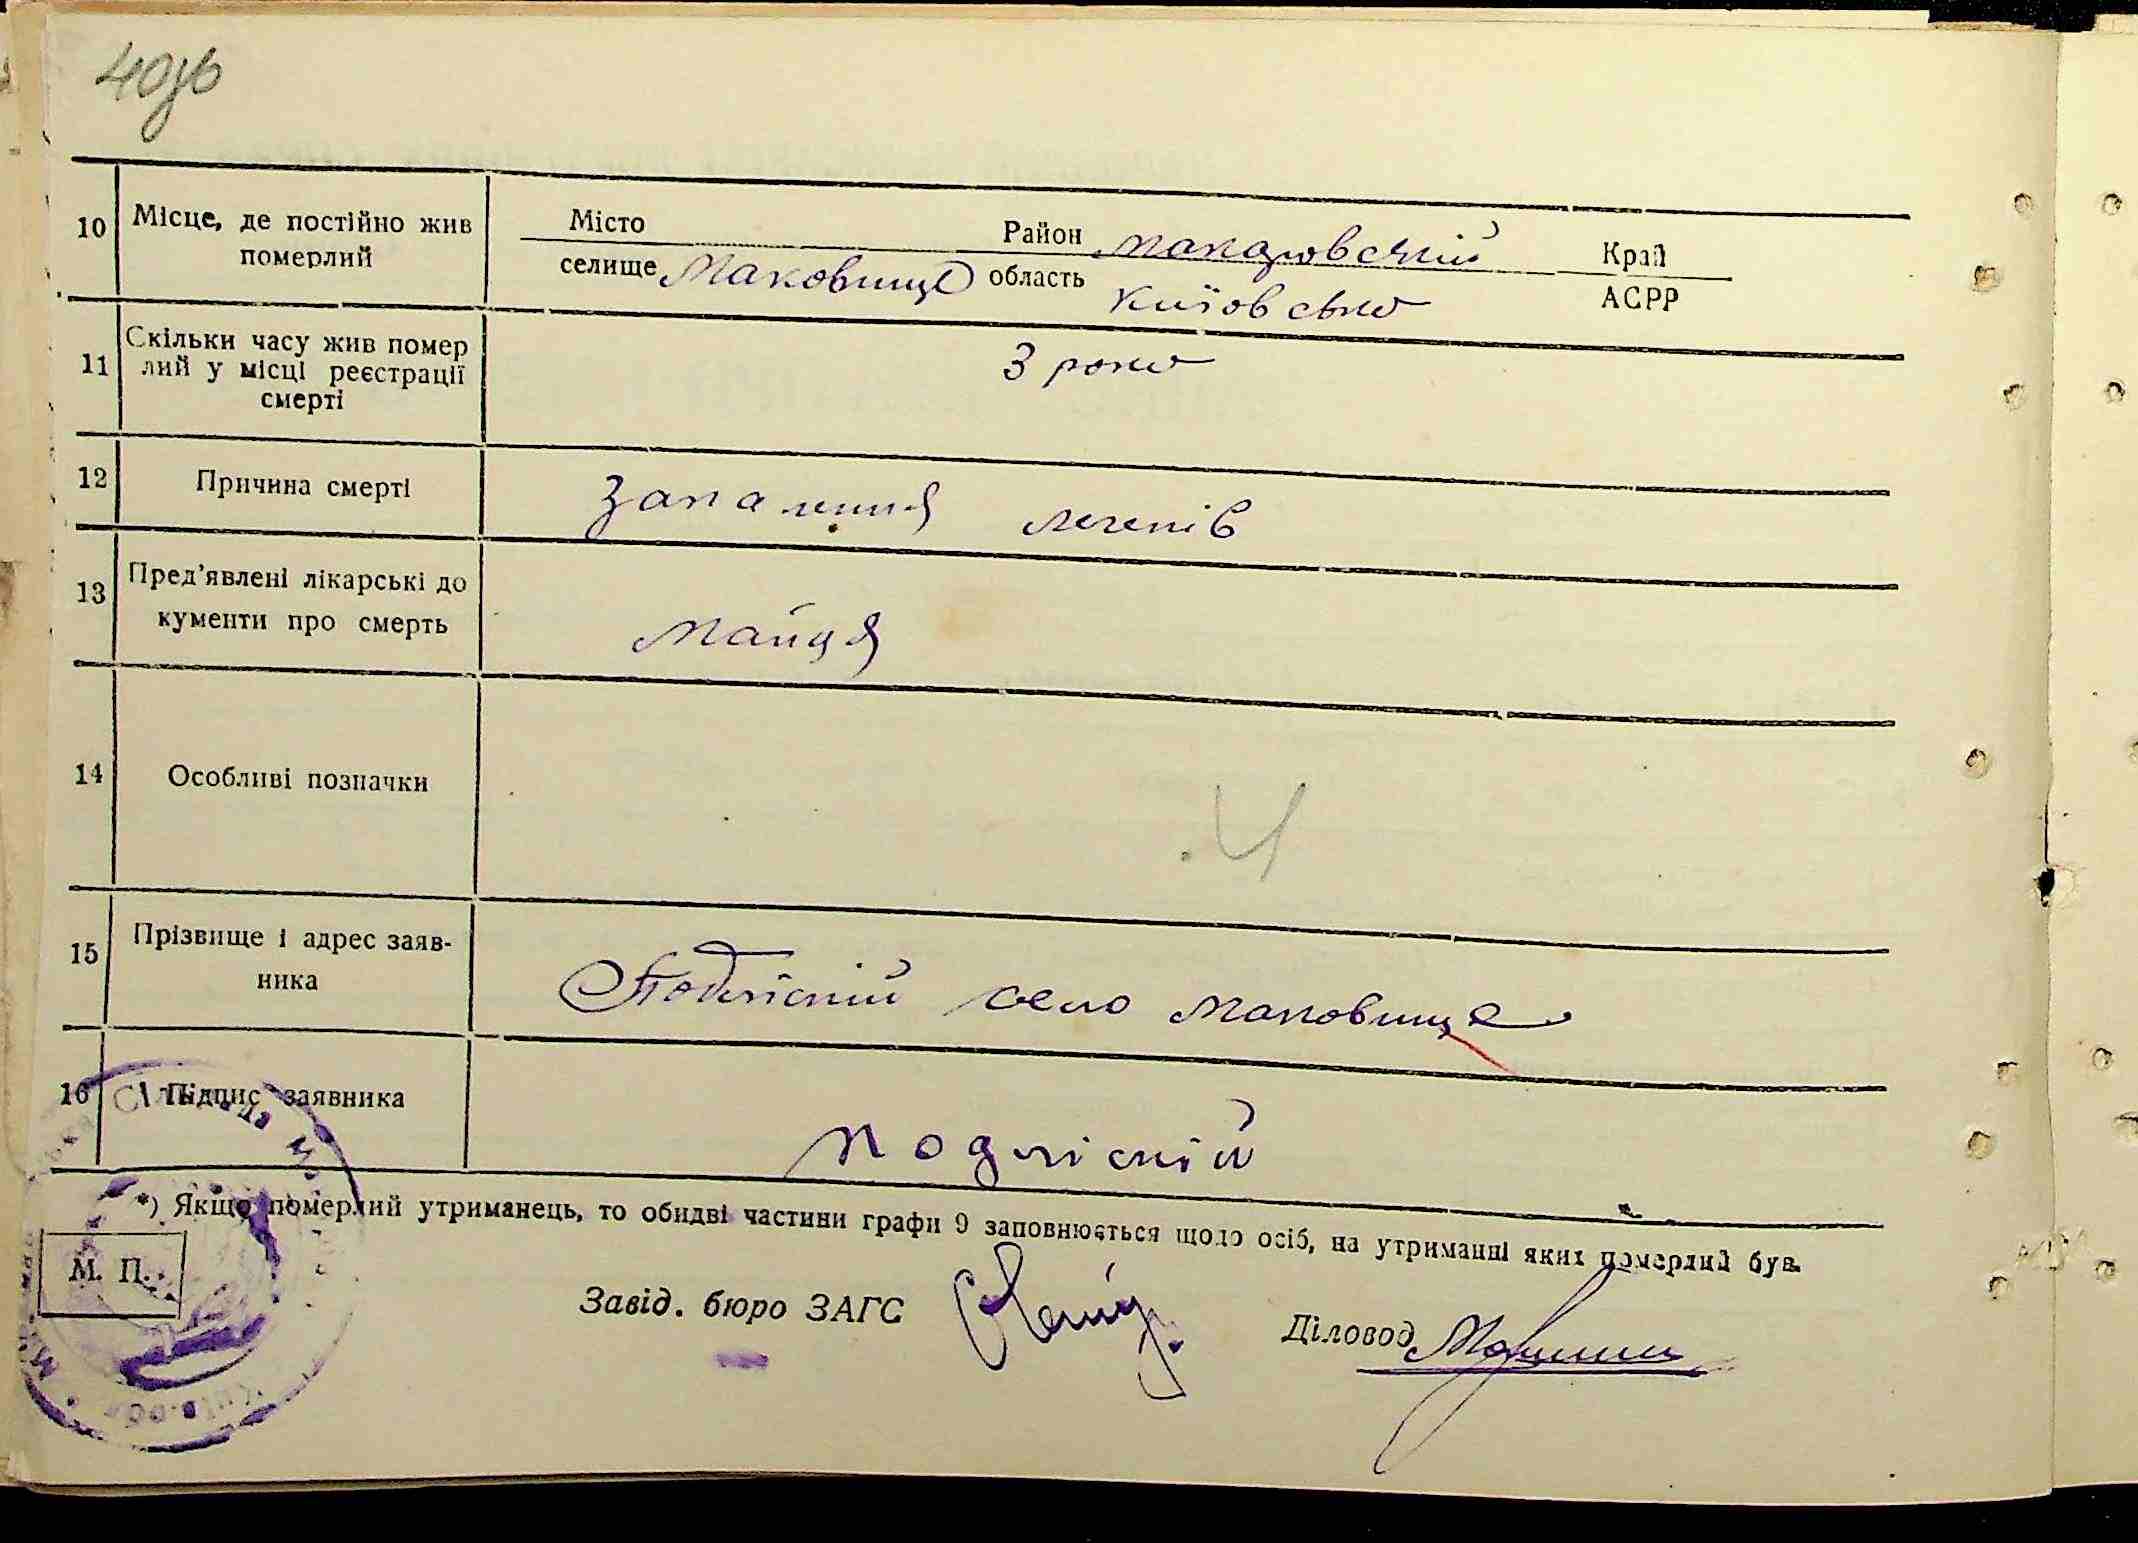 40зв
10 Місце, де постійно жив померлий
Місто Район Макаровский Край
селище Маковище область Київсько АСРР
11 Скільки часу жив помер
лий у місці реєстрації
смерті
3 роки
12 Причина смерті
Запалиния легенів
13 Пред'явлені лікарські до
кументи про смерть
14 Особливі позначки
Ч
15 Прізвище і адрес заяв-
ника
Подліский село Маковище
16 Підпис заявника
Подліский
*) Якщо померлий утриманець, то обидві частини графи 9 заповнюється щодо осіб, на утриманні яких померлий був.
М. П.
Завід. бюро ЗАГС
Діловод